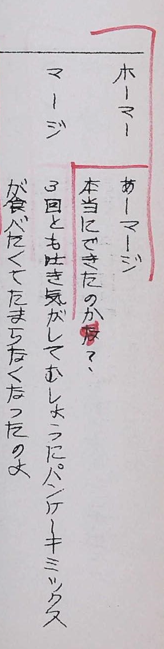 ホーマー　あーマージ
本当にできたのか?、
マージ　3回とも吐き気がしてむしょうにパンケーキミックス
が食べたくてたまらなくなったのよ